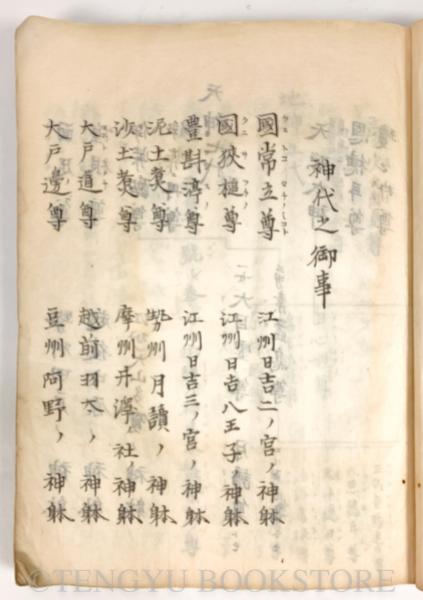 天神代之御事
國常立尊 江州日吉二ノ宮ノ神躰
クニトコタチノミコト
國狹槌尊 江州日吉八王子ノ神躰
豊斟渟尊 江州日吉三ノ宮ノ神躰
泥土煑尊 勢州月讀ノ神躰
沙土煑尊 摩州井澤社神躰
大戸道尊 越前羽太ノ神躰
大戸邊尊 豆州阿野ノ神躰
©TENGYU BOOKSTORE